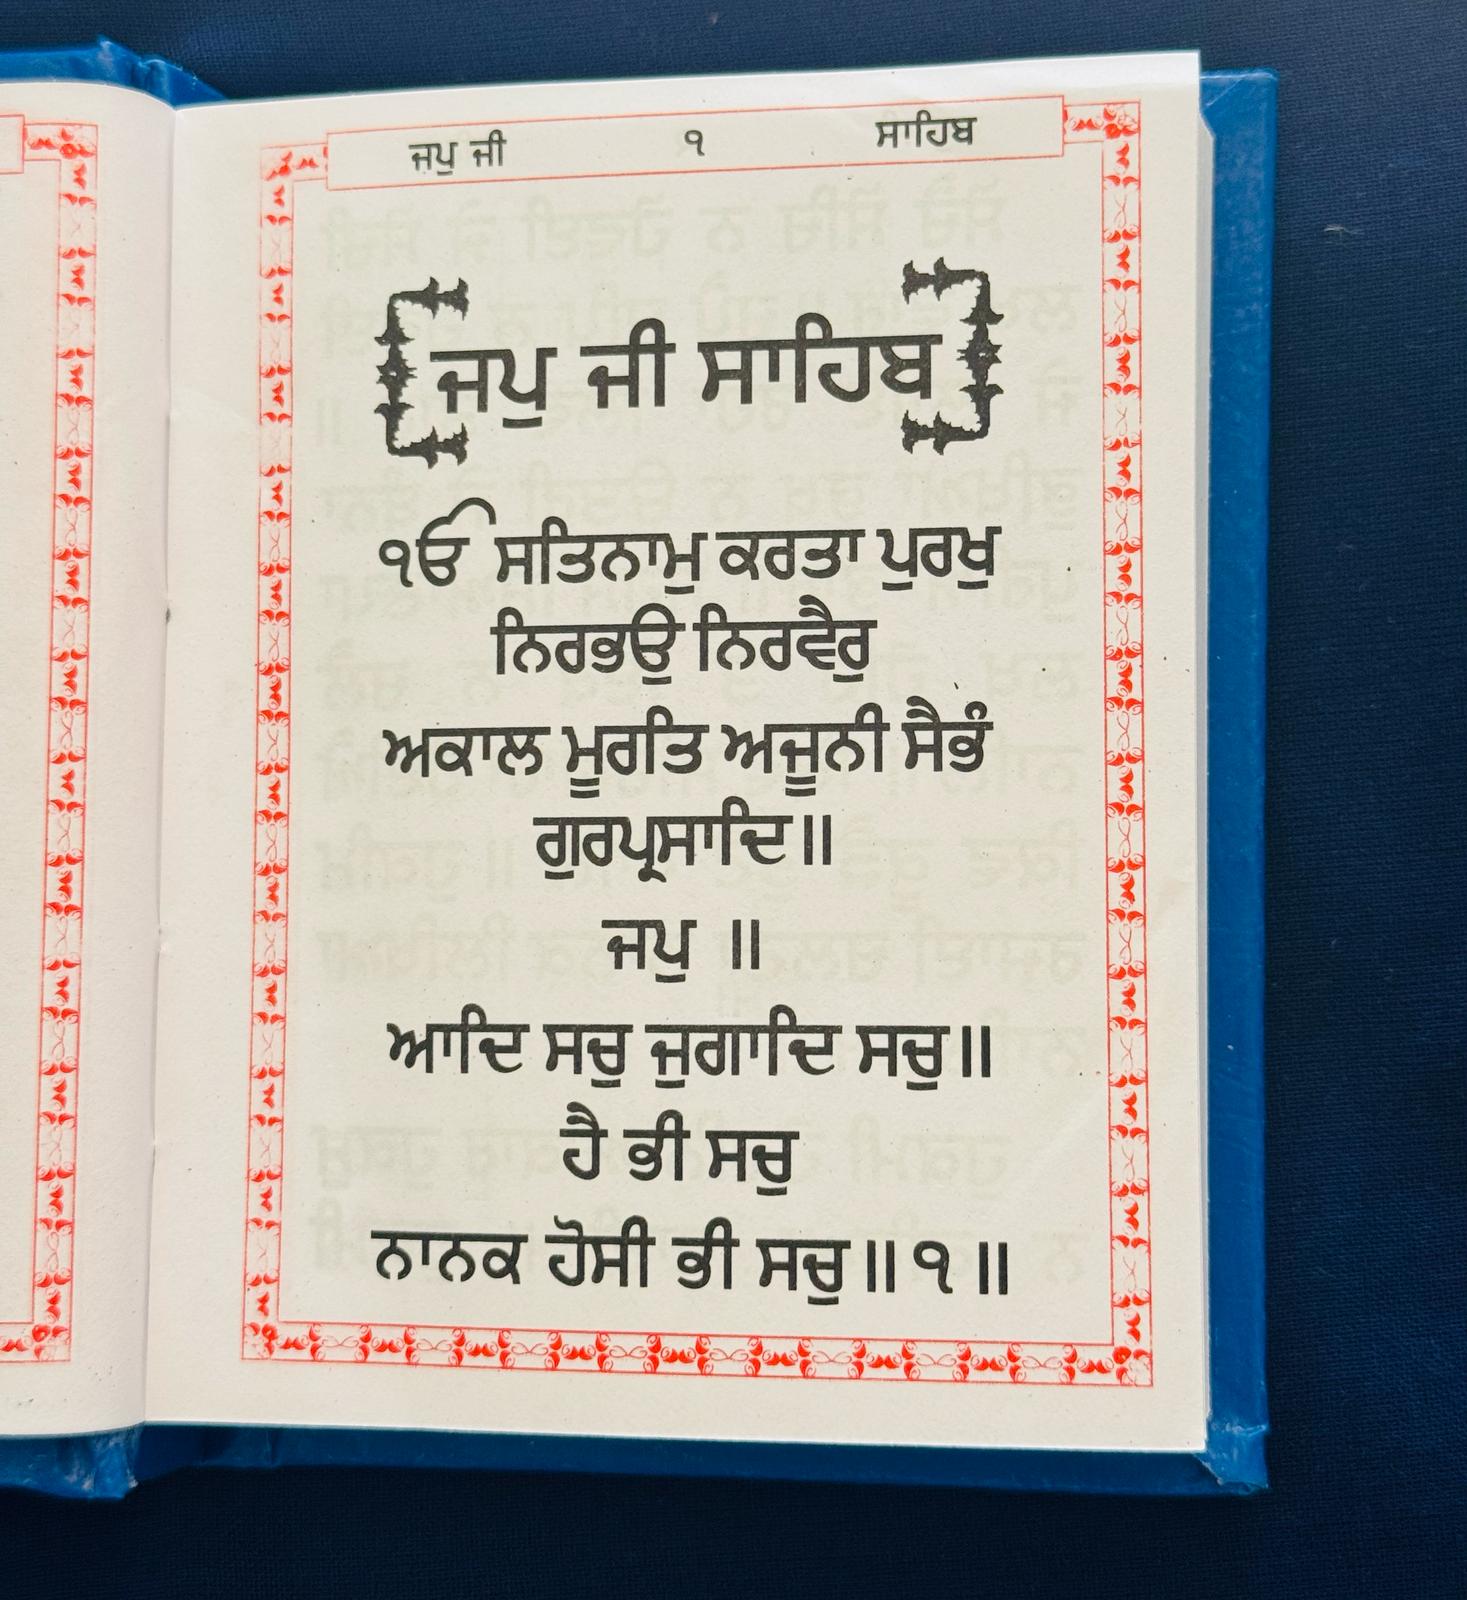 ਜਪੁ ਜੀ ੧ ਸਾਹਿਬ
ਜਪੁ ਜੀ ਸਾਹਿਬ
ੴ ਸਤਿਨਾਮੁ ਕਰਤਾ ਪੁਰਖੁ
ਨਿਰਭਉ ਨਿਰਵੈਰੁ
ਅਕਾਲ ਮੂਰਤਿ ਅਜੂਨੀ ਸੈਭੰ
ਗੁਰਪ੍ਰਸਾਦਿ॥
ਜਪੁ ॥
ਆਦਿ ਸਚੁ ਜੁਗਾਦਿ ਸਚੁ॥
ਹੈ ਭੀ ਸਚੁ
ਨਾਨਕ ਹੋਸੀ ਭੀ ਸਚੁ॥੧॥